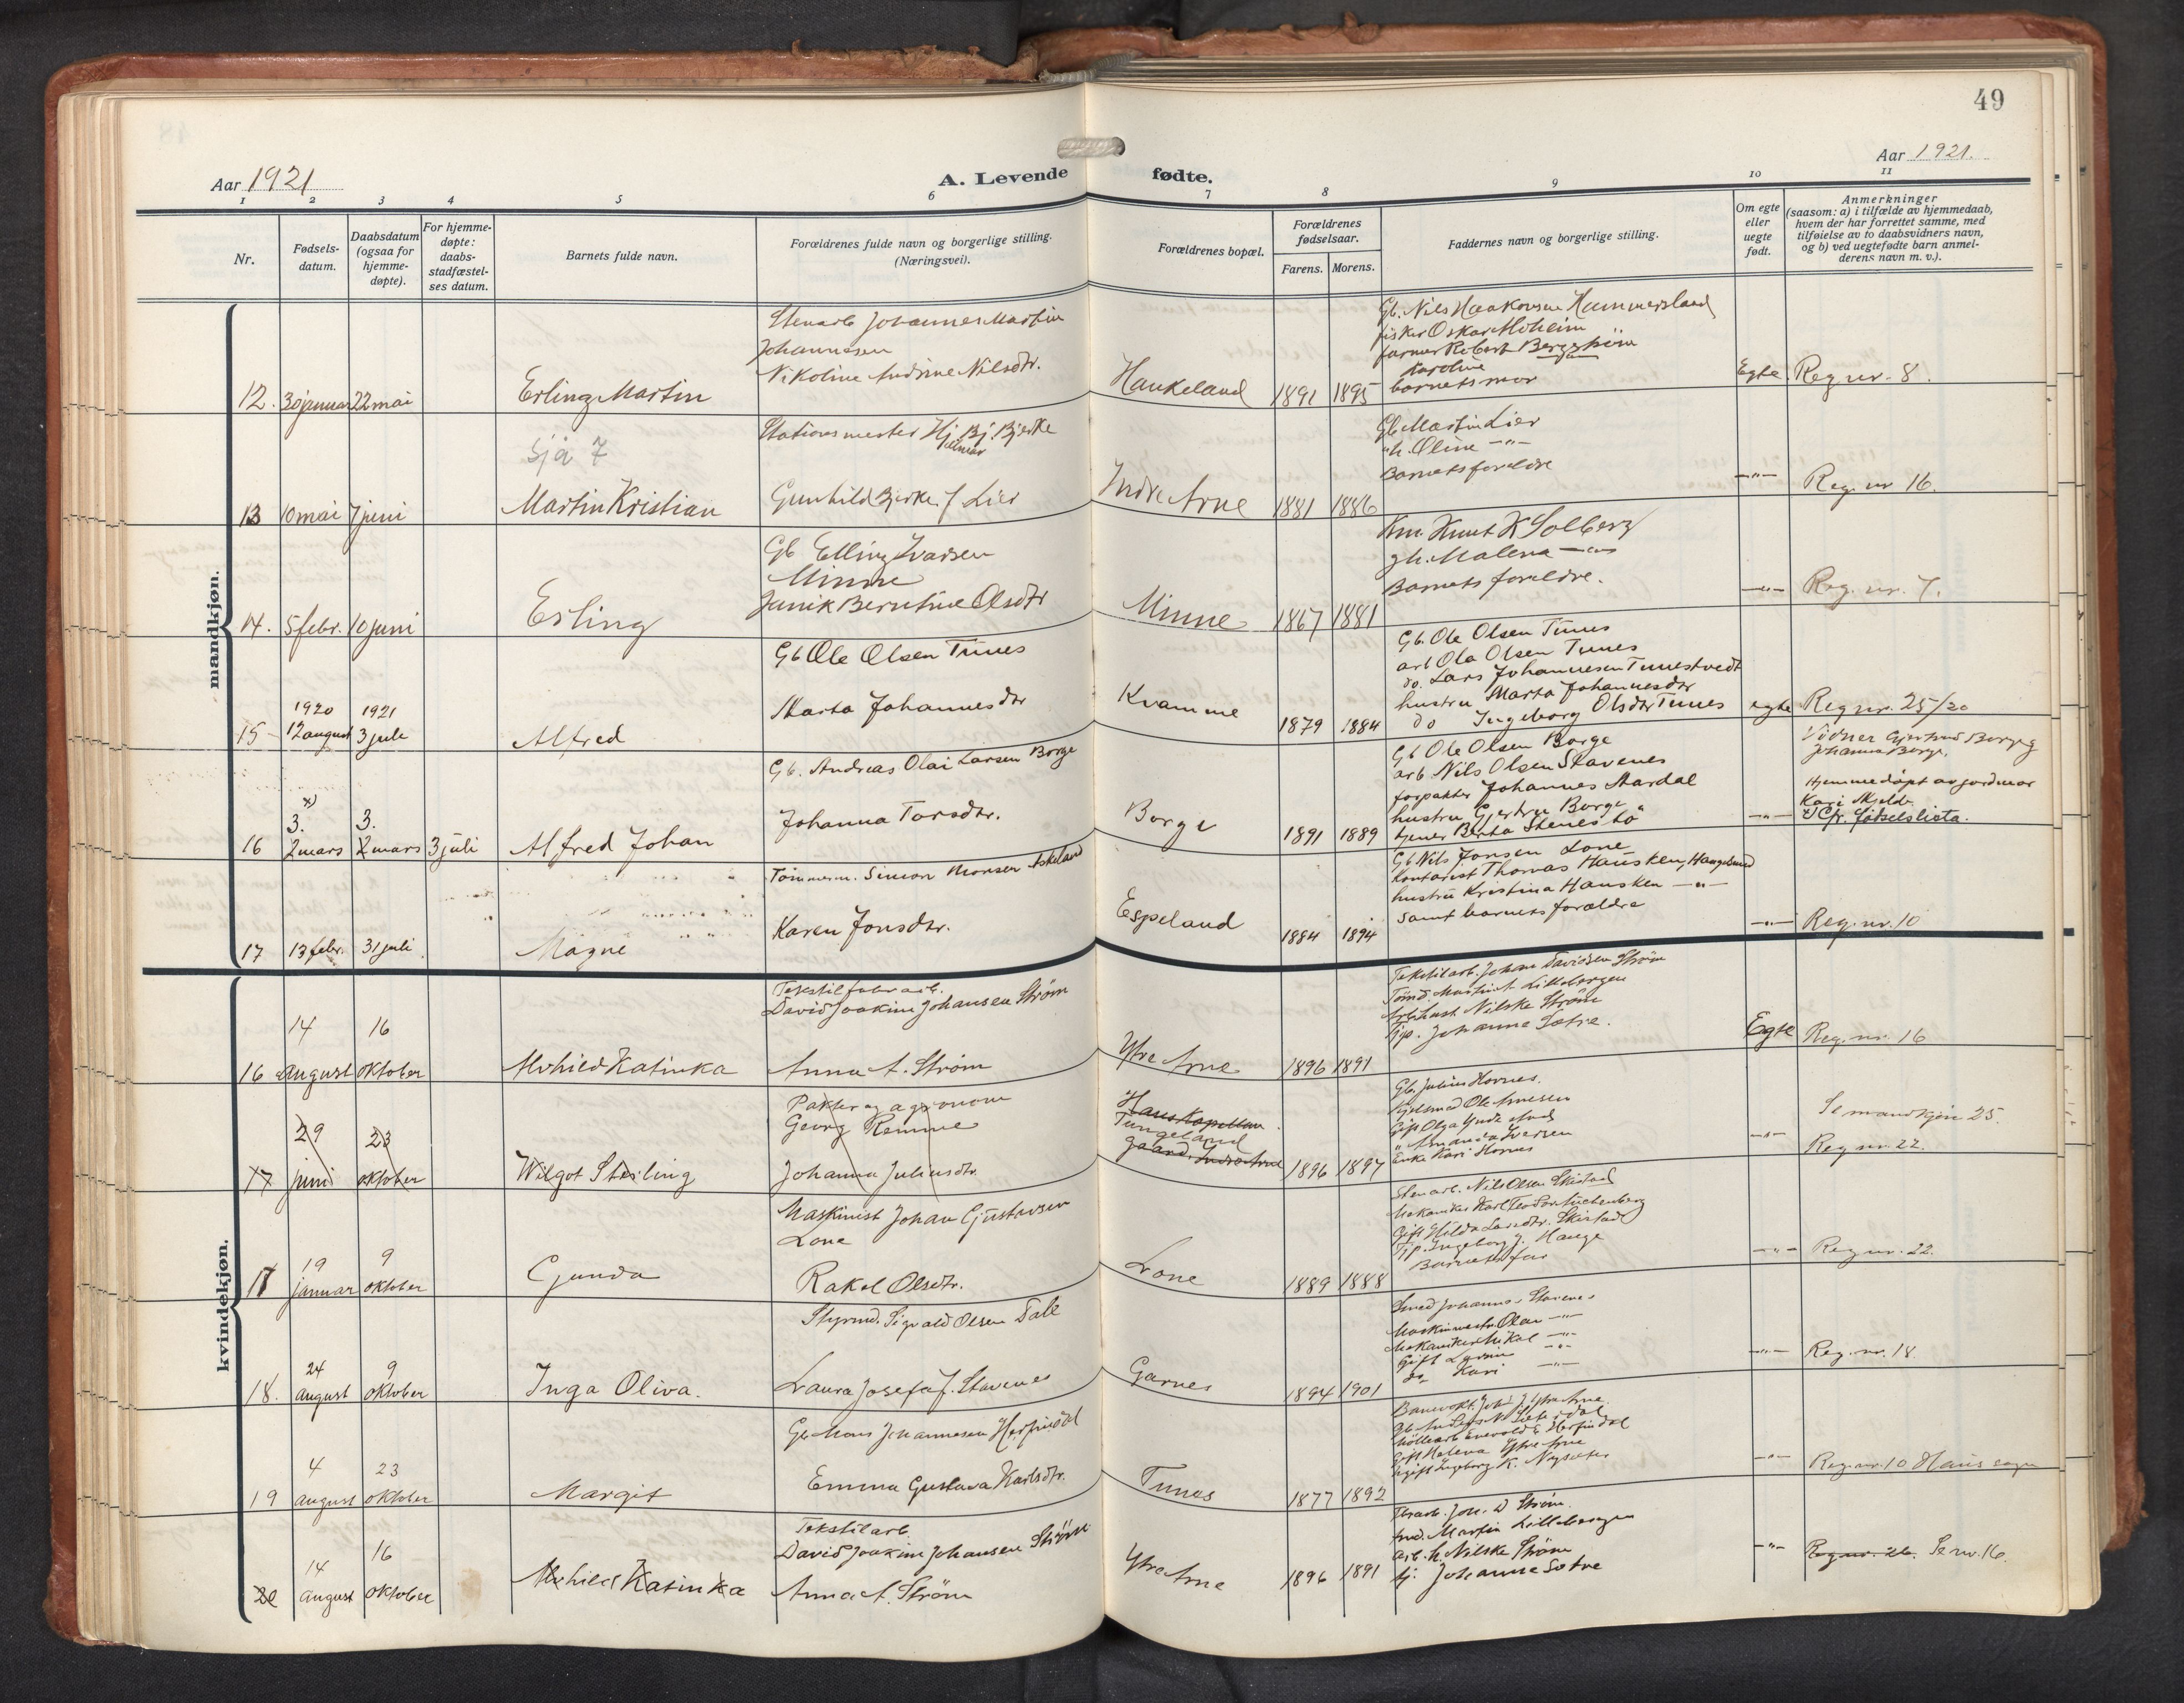 49
Aar 1921
A. Levende fødte.
Aar 1921.
1 2 3 4 5 6 7 8 9 10 11
Nr.
Fødsels-
datum.
Daabsdatum
(ogsaa for
hjemme-
døpte).
For hjemme-
døpte:
daabs-
stadfæstel-
ses datum.
Barnets fulde navn.
Forældrenes fulde navn og borgerlige stilling.
(Næringsvei).
Forældrenes bopæl.
Forældrenes
fødselsaar.
Farens. Morens.
Faddernes navn og borgerlige stilling.
Om egte
eller
uegte
født.
Anmerkninger
(saasom: a) i tilfælde av hjemmedaab,
hvem der har forrettet samme, med
tilføielse av to daabsvidners navn,
og b) ved uegtefødte barn anmel-
derens navn m. v.).
mandkjøn.
12. 30 januar 22 mai
Erling Martin
Stenarb Johannes Martin
Johannesen
Nikoline Andrine Nilsdtr.
Haukeland
1891 1895
Gb. Nils Haakonsen Hammersland
fisker Oskar Moheim
farmer Robert
Karoline
barnets mor
Egte. Reg nr. 8.
13 10 mai 7 juni
Sjå 7
Martin Kristian
Stationsmester Hj. Bj. Bjerke
Hjelmar
Gunhild Bjerke f Lier
Indre Arne
1881 1886
Gb Martin Lier
h. Oline -"-
Barnets foreldre
-"- Reg. nr 16.
14. 5 febr. 10 juni
Erling
Gb Elling Ivarsen
Minne
Janik Berntine Olsdtr
Minne
1867 1881
Km. Knut K Solberg
gh. Malena -"-
Barnets foreldre.
-"- Reg. nr. 7.
15 1920 12 august 1921 3 juli
Alfred
Gb Ole Olsen Tunes
Marta Johannesdtr
Kvamme
1879 1884
Gb. Ole Olsen Tunes
arb Ola Olsen Tunes
do. Lars Johannesen Tunestvedt
hustru Marta Johannesdtr
do Ingeborg Olsdtr Tunes
egte Reg nr. 25/20
16 x) 3. 2 mars 3. 2 mars 3 juli
Alfred Johan
Gb. Andreas Olai Larsen Borge
Johanna Torsdtr.
Borge
1891 1889
Gb Ole Olsen Borge
arb Nils Olsen Stavenes
forpakter Johannes Aardal
hustru Gjertru Borge
tjener Berta Stenestø
-"-
Vidner Gjertrud Borge og
Johanna Borge.
Hjemmedøpt av jordmor
Kari Mjelde.
x) Cfr. fødselslista.
17 13 febr. 31 juli
Magne
Tømmerm. Simon Monsen Askeland
Karen Jonsdtr.
Espeland
1884 1894
Gb Nils Jonsen Lone
Kontorist Thomas Hausken, Haugesund
hustru Kristina Hausken -"-
samt barnets forældre
-"- Reg. nr. 10
kvindekjøn.
16 14 august 16 oktober
Alvhild Katinka
Tekstilfabr arb.
David Joakim Johansen Strøm
Anna A. Strøm
Ytre Arne
1896 1891
Tekstilarb. Johan Davidsen Strøm
Tømd. Martin A Lillebergen
Arb. hust. Nilske Strøm
Tjp. Johanne Sætre.
Egte Reg. nr. 16
17 29 juni 23 oktober
Wilgot Sterling
Pakter og agronom
Georg Remme
Johanna Juliusdtr.
Haus Kapellan
Tungeland
gaard. Indre Arne
1896 1897
Gb. Julius Hornes.
Hjulsmed Ole Arnesen
Gift Olga
" Amanda Iversen
Enke Kari Hornes
-"-
Se mandkjøn 25.
Reg nr. 22.
17 19 januar 9 oktober
Gunda
Maskinist Johan Gustavsen
Lone
Rakel Olsdtr.
Lone
1889 1888
Stenarb. Nils Olsen Skistad
Mekaniker Karl Teodor Lichenberg
Gift Hilda Larsdtr. Skistad
Tjp. Ingeborg J. Hauge
Barnets far
-"- Reg nr. 22.
18. 24 august 9 oktober
Inga Oliva.
Styrmd. Sigvald Olsen Dale
Laura Josefa f. Stavenes
Garnes
1894 1901
Smed Johannes Stavenes
Maskinmestr. Olav -"-
Mekaniker Mikal -"-
Gift -"-
do Kari -"-
-"- Reg. nr. 18.
19 4 august 23 oktober
Margit
Gb Mons Johannesen Herfindal
Emma Gustava Karlsdtr.
Tunes
1877 1892
Banevokt. Joh. J. Ytre Arne
Møllearb Enevold E Herfindal
Gift Malena Ytre Arne
Ugift Ingeborg K. Nysæter
-"- Reg. nr. 10 Haus sogn
20 14 august 16 oktober
Alvhild Katinka
Tekstilarb.
David Joakim Johansen Strøm
Anna A. Strøm
Ytre Arne
1896 1891
Joh. D Strøm.
tmd. Martin Lillebergen
arb. h. Nilske Strøm
tj. Johanne Sætre
-"- Reg. nr. 26. Se nr. 16.